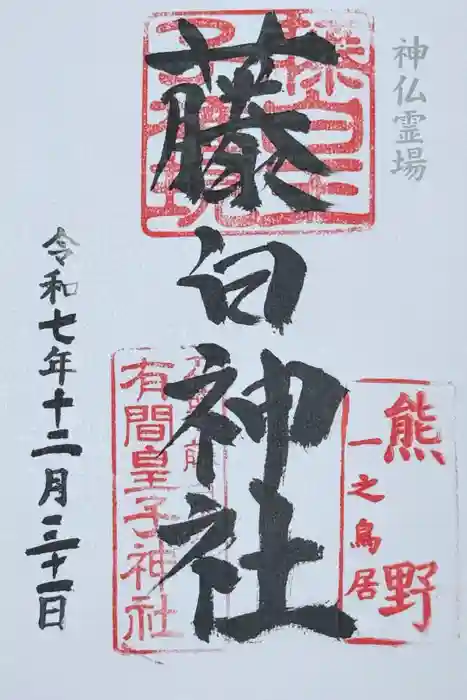 神仏霊場
藤白神社
熊野
一之鳥居
有間皇子神社
令和七年十二月三十一日